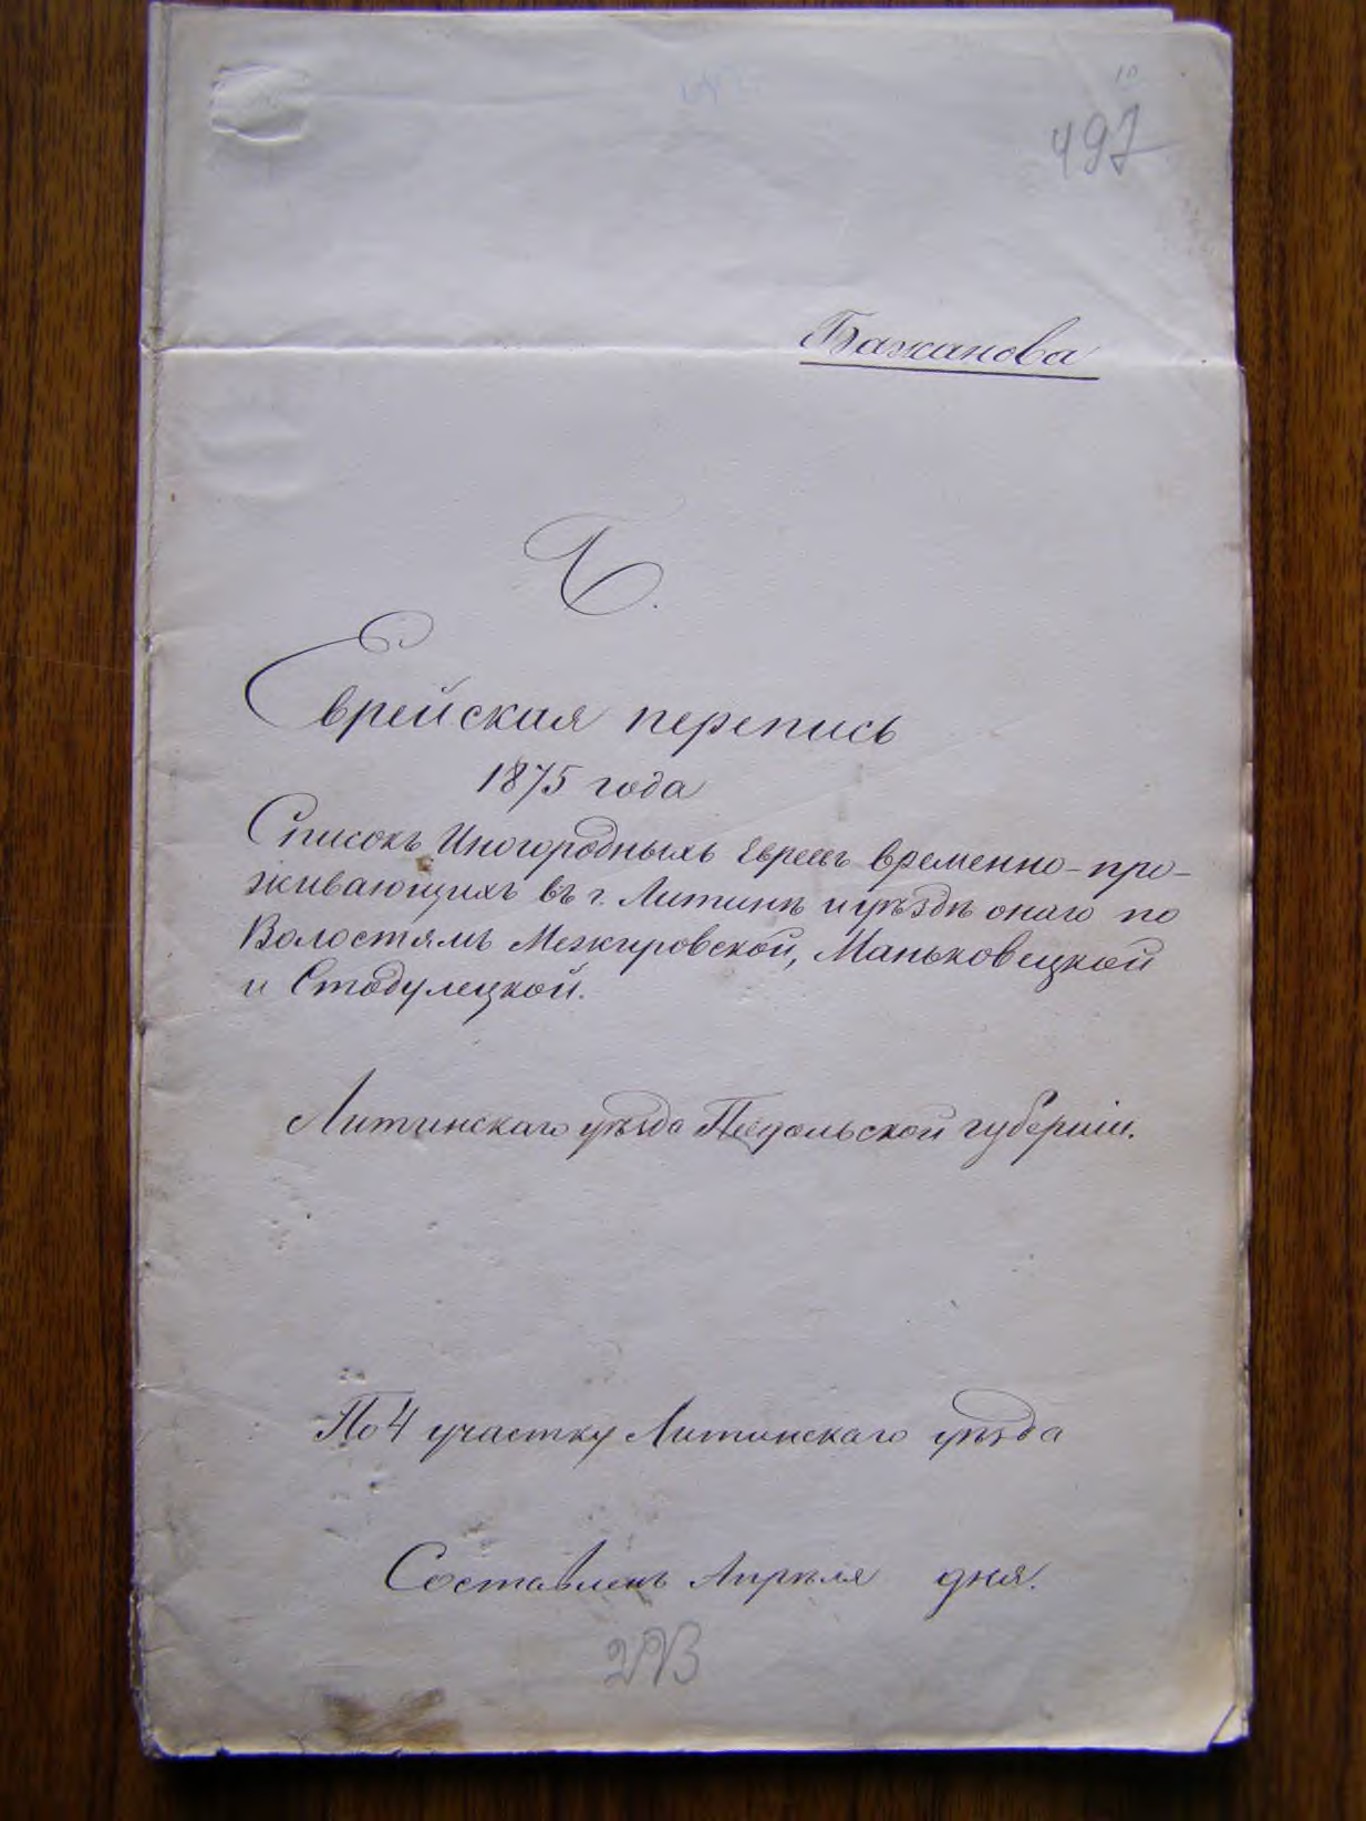 10
497
Бажанова
Б.
Еврейская перепись
1875 года
Списокъ Иногородныхъ Евреевъ временно-про-
живающихъ въ г. Литинѣ и уѣздѣ онаго по
Волостямъ Межировской, Маньковецкой
и Стодулецкой.
Литинскаго уѣзда Подольской губерніи.
По 4 участку Литинскаго уѣзда
Составленъ Апрѣля дня.